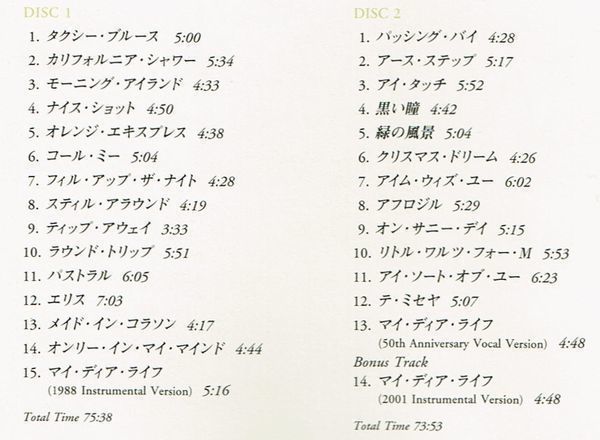 DISC 1
1. タクシー・ブルース 5:00
2. カリフォルニア・シャワー 5:34
3. モーニング・アイランド 4:33
4. ナイス・ショット 4:50
5. オレンジ・エキスプレス 4:38
6. コール・ミー 5:04
7. フィル・アップ・ザ・ナイト 4:28
8. スティル・アラウンド 4:19
9. ティップ・アウェイ 3:33
10. ラウンド・トリップ 5:51
11. パストラル 6:05
12. エリス 7:03
13. メイド・イン・コラソン 4:17
14. オンリー・イン・マイ・マインド 4:44
15. マイ・ディア・ライフ
(1988 Instrumental Version) 5:16
Total Time 75:38
DISC 2
1. パッシング・バイ 4:28
2. アース・ステップ 5:17
3. アイ・タッチ 5:52
4. 黒い瞳 4:42
5. 緑の風景 5:04
6. クリスマス・ドリーム 4:26
7. アイム・ウィズ・ユー 6:02
8. アフロジル 5:29
9. オン・サニー・デイ 5:15
10. リトル・ワルツ・フォー・M 5:53
11. アイ・ソート・オブ・ユー 6:23
12. テ・ミセヤ 5:07
13. マイ・ディア・ライフ
(50th Anniversary Vocal Version) 4:48
Bonus Track
14. マイ・ディア・ライフ
(2001 Instrumental Version) 4:48
Total Time 73:53